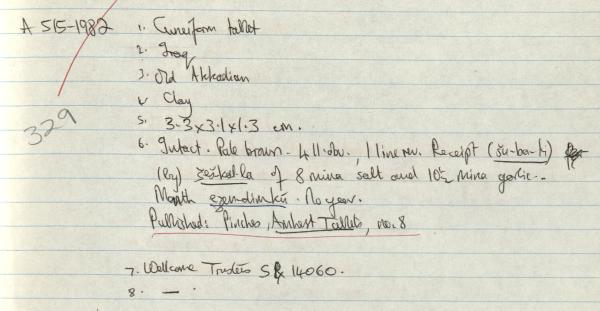 A 515-1982 1. Cuneiform tablet
2. Iraq
3. Old Akkadian
4 Clay
329
5. 3.3 x 3.1 x 1.3 cm.
6. Intact. Pale brown - 4 ll. obv., 1 line rev. Receipt (šu-ba-ti)
(by) šeškal-la of 8 mina salt and 10½ mina garlic.-
Month ezen-dimkú. No year.
Published: Pinches, Amherst Tablets, no. 8
7. Wellcome Trustees 14060.
8. — .